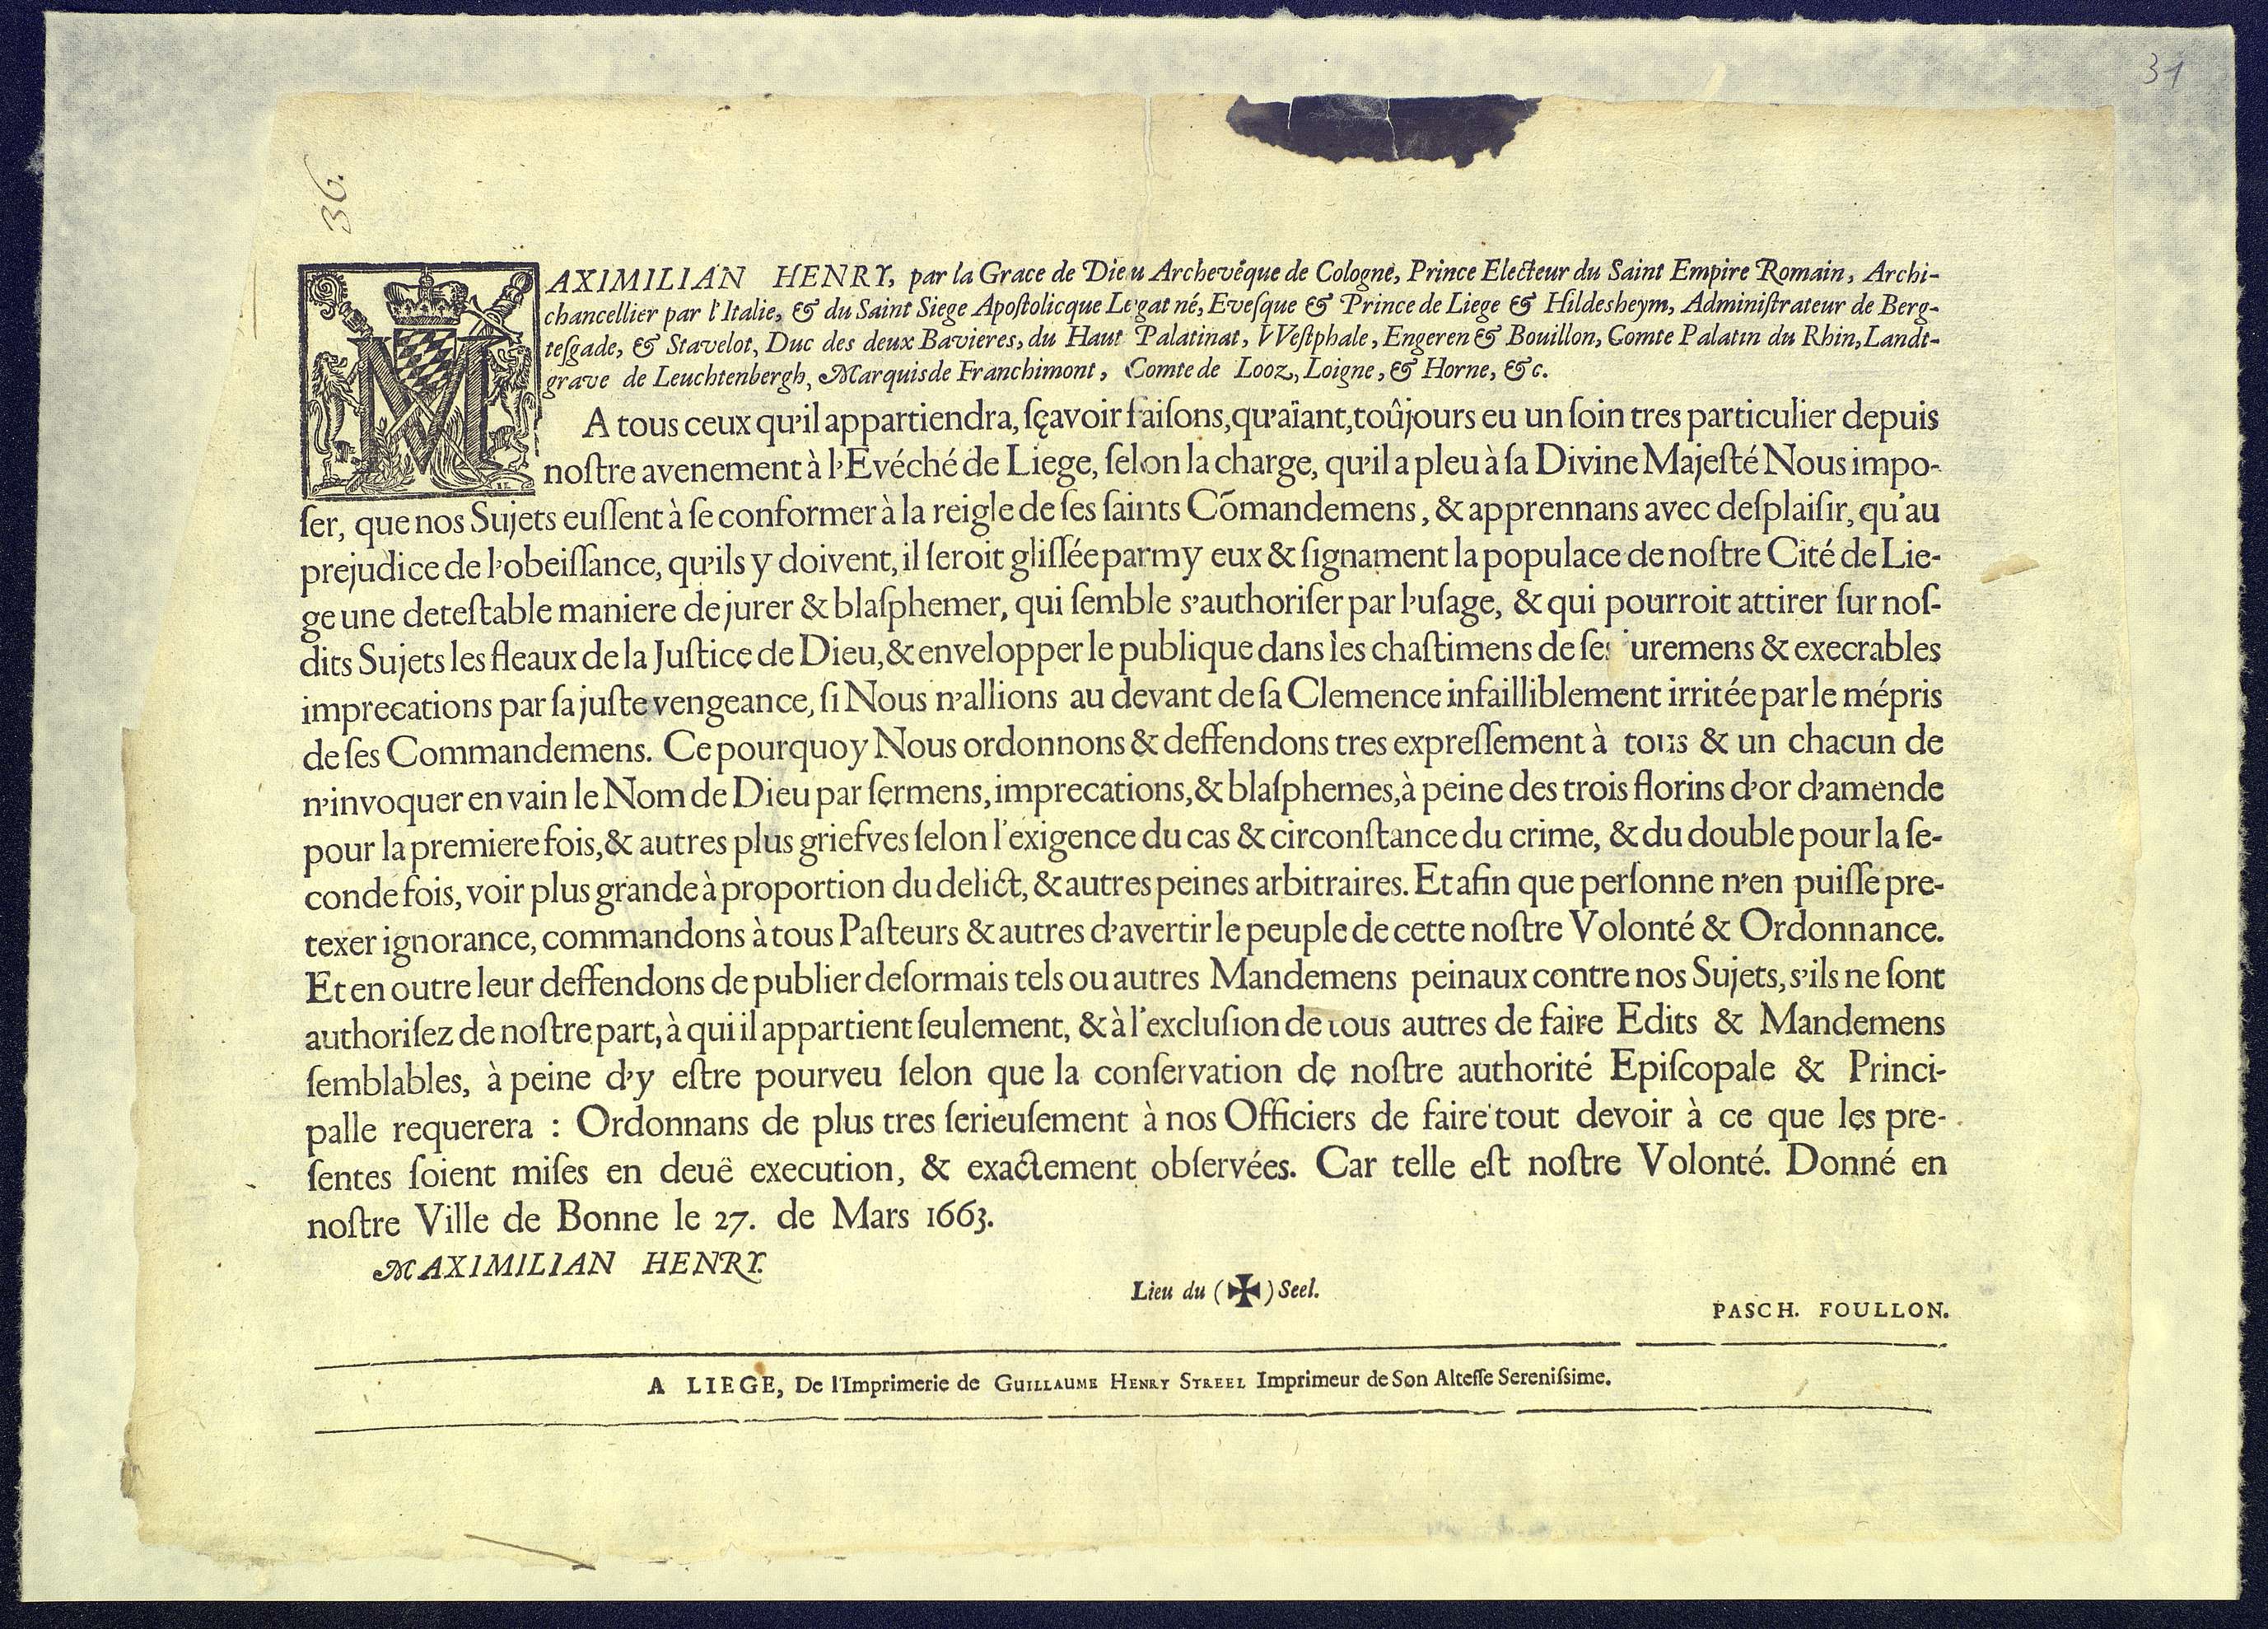 31
36.
MAXIMILIAN HENRY, par la Grace de Dieu Archevêque de Cologne, Prince Electeur du Saint Empire Romain, Archi-
chancellier par l'Italie, & du Saint Siege Apoſtolicque Legat né, Eveſque & Prince de Liege & Hildesheym, Adminiſtrateur de Berg-
teſgade, & Stavelot, Duc des deux Bavieres, du Haut Palatinat, VVeſtphale, Engeren & Bouillon, Comte Palatin du Rhin, Landt-
grave de Leuchtenbergh, Marquis de Franchimont, Comte de Looz, Loigne, & Horne, &c.
A tous ceux qu'il appartiendra, ſçavoir faiſons, qu'aïant, toûjours eu un ſoin tres particulier depuis
noſtre avenement à l'Evéché de Liege, ſelon la charge, qu'il a pleu à ſa Divine Majeſté Nous impo-
ſer, que nos Sujets euſſent à ſe conformer à la reigle de ſes ſaints Cõmandemens, & apprennans avec deſplaiſir, qu'au
prejudice de l'obeiſſance, qu'ils y doivent, il ſeroit gliſſée parmy eux & ſignament la populace de noſtre Cité de Lie-
ge une deteſtable maniere de jurer & blaſphemer, qui ſemble s'authoriſer par l'uſage, & qui pourroit attirer ſur noſ-
dits Sujets les fleaux de la Juſtice de Dieu, & envelopper le publique dans les chaſtimens de ſes uremens & execrables
imprecations par ſa juſte vengeance, ſi Nous n'allions au devant de ſa Clemence infailliblement irritée par le mépris
de ſes Commandemens. Ce pourquoy Nous ordonnons & deffendons tres expreſſement à tous & un chacun de
n'invoquer en vain le Nom de Dieu par ſermens, imprecations, & blaſphemes, à peine des trois florins d'or d'amende
pour la premiere fois, & autres plus griefves ſelon l'exigence du cas & circonſtance du crime, & du double pour la ſe-
conde fois, voir plus grande à proportion du delict, & autres peines arbitraires. Et afin que perſonne n'en puiſſe pre-
texer ignorance, commandons à tous Paſteurs & autres d'avertir le peuple de cette noſtre Volonté & Ordonnance.
Et en outre leur deffendons de publier deſormais tels ou autres Mandemens peinaux contre nos Sujets, s'ils ne ſont
authoriſez de noſtre part, à qui il appartient ſeulement, & à l'excluſion de tous autres de faire Edits & Mandemens
ſemblables, à peine d'y eſtre pourveu ſelon que la conſervation de noſtre authorité Epiſcopale & Princi-
palle requerera : Ordonnans de plus tres ſerieuſement à nos Officiers de faire tout devoir à ce que les pre-
ſentes ſoient miſes en deuë execution, & exactement obſervées. Car telle eſt noſtre Volonté. Donné en
noſtre Ville de Bonne le 27. de Mars 1663.
MAXIMILIAN HENRY.
Lieu du (✠) Seel.
PASCH. FOULLON.
A LIEGE, De l'Imprimerie de GUILLAUME HENRY STREEL Imprimeur de Son Alteſſe Sereniſsime.